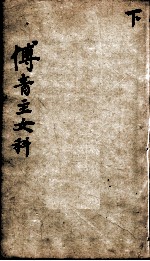 下
傅青主女科